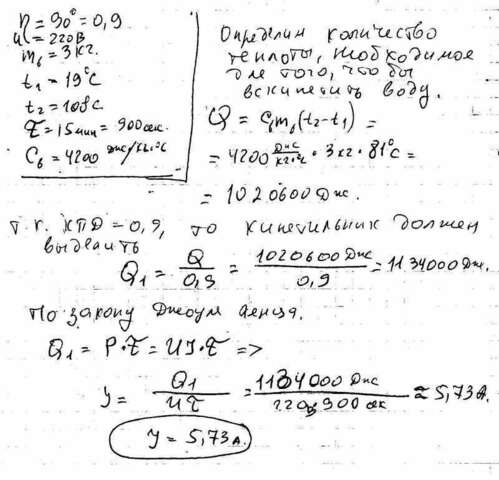 η = 90° = 0,9
U = 220В
mв = 3кг.
t₁ = 19°С
t₂ = 108С
τ = 15мин = 900сек.
Cв = 4200 Дж/кг.°С
Определим количество
теплоты, необходимое
для того, что бы
вскипетить воду.
Q = Cвmв(t₂-t₁) =
= 4200 Дж/кг.°С · 3кг · 81°С =
= 1020600 Дж.
т.к. КПД = 0,9, то кипетильник должен
выделить
Q₁ = Q/0,9 = 1020600 Дж/0,9 = 1134000 Дж.
По закону Джоуля Ленца.
Q₁ = P·τ = UJ·τ =>
J = Q₁/Uτ = 1134000 Дж/220В·900 сек ≈ 5,73А.
J = 5,73А.